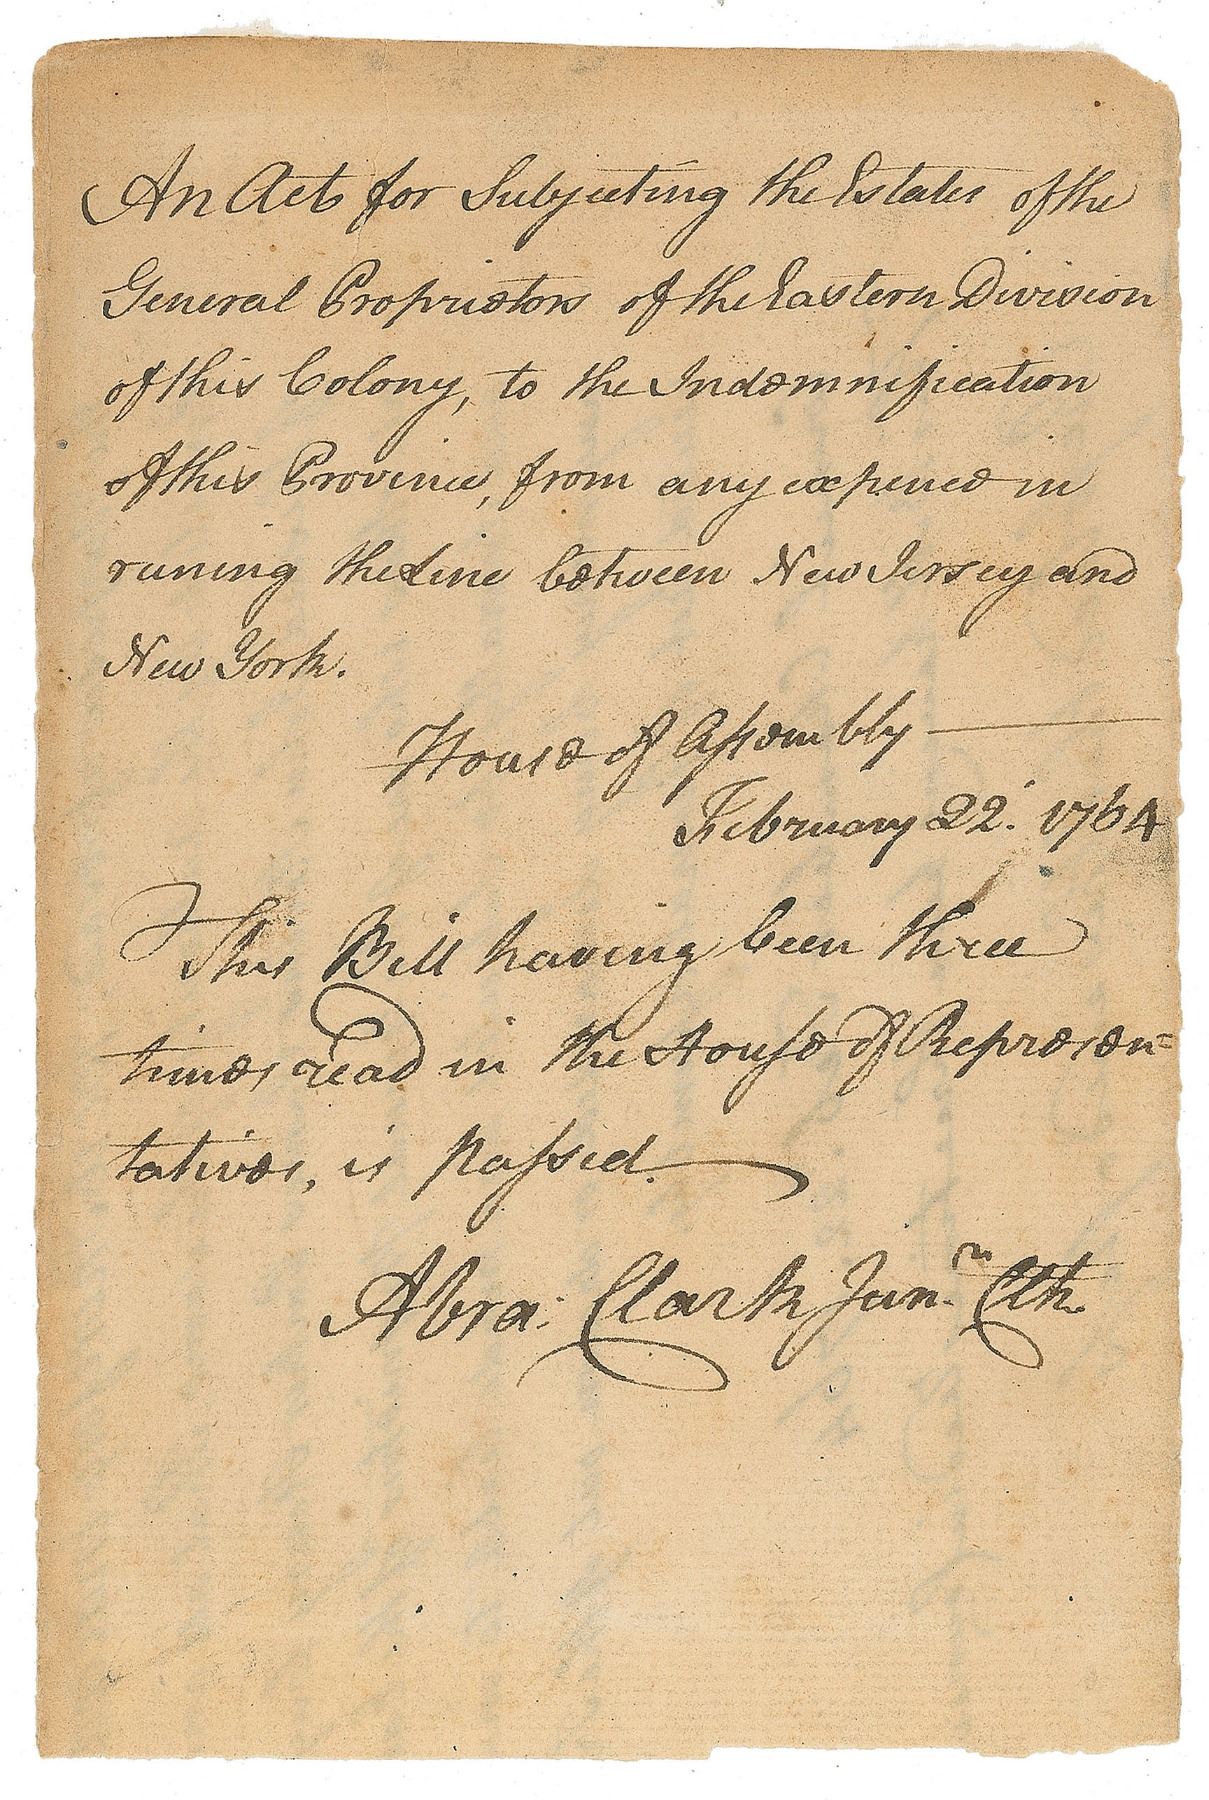 An Act for Subjecting the Estates of the
General Proprietors of the Eastern Division
of this Colony, to the Indemnification
of this Province, from any expence in
runing the Line between New Jersey and
New York.
House of Assembly
February 22. 1764
This Bill having been three
times read in the House of Represen=
tatives, is passed.
Abra: Clark Junr. Clk.